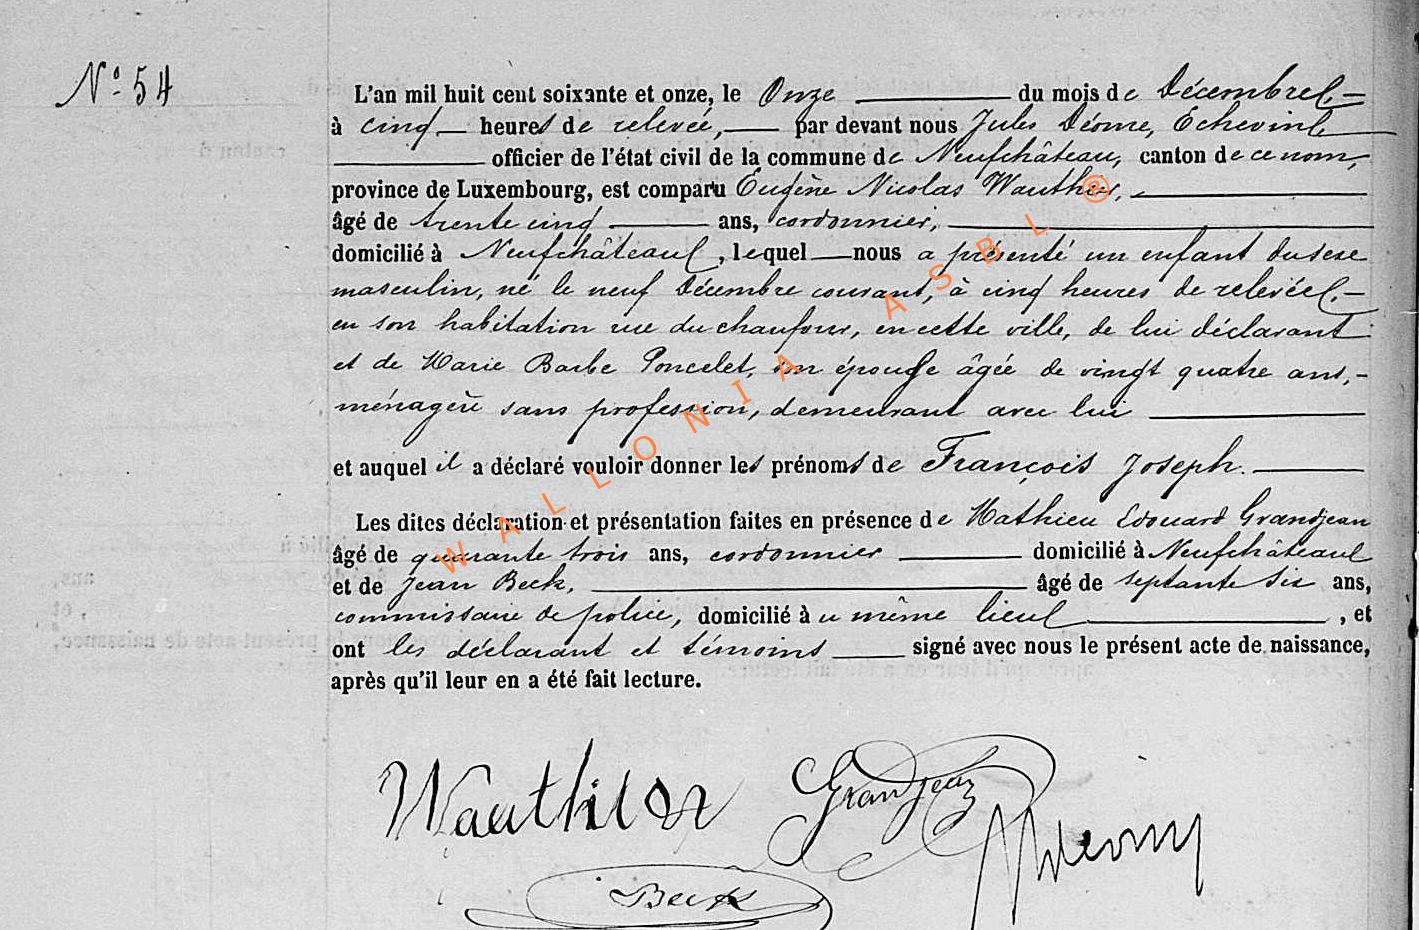 N° 54
L'an mil huit cent soixante et onze, le Onze du mois de Décembre,
à cinq heures de relevée, par devant nous Jules Déome, Echevin
officier de l'état civil de la commune de Neufchâteau, canton de ce nom,
province de Luxembourg, est comparu Eugène Nicolas
âgé de trente cinq ans, cordonnier,
domicilié à Neufchâteau, lequel nous a présenté un enfant du sexe
masculin, né le neuf Décembre courant, à cinq heures de relevée,
en son habitation rue du chaufour, en cette ville, de lui déclarant
et de Marie Barbe Poncelet, son épouse âgée de vingt quatre ans,
ménagère sans profession, demeurant avec lui
et auquel il a déclaré vouloir donner les prénoms de François Joseph.
Les dites déclaration et présentation faites en présence de Mathieu Edouard Grandjean
âgé de quarante trois ans, cordonnier domicilié à Neufchâteau
et de Jean Beck, âgé de septante six ans,
commissaire de police, domicilié à u même lieu, et
ont les déclarant et témoins signé avec nous le présent acte de naissance,
après qu'il leur en a été fait lecture.
Grandjean
Beck
WALLONIA ASBL ®